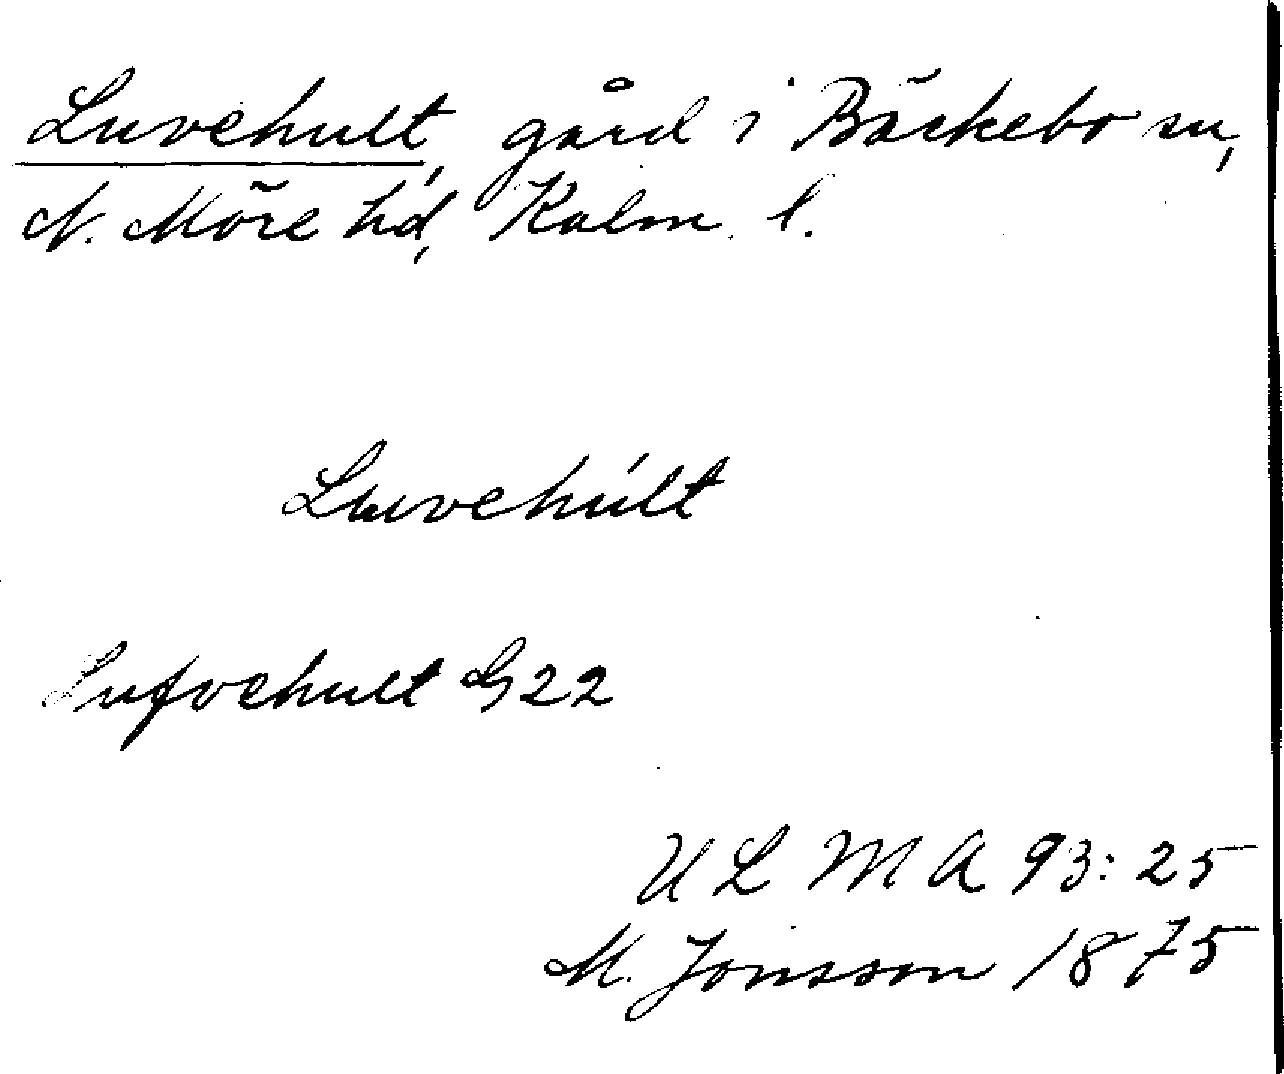 Luvehult, gård i Bäckebo sn,
N. Möre hd, Kalm. l.
Luuvehúlt
Lufvehult G 22
U L M A 93:25
M. Jonsson 1875